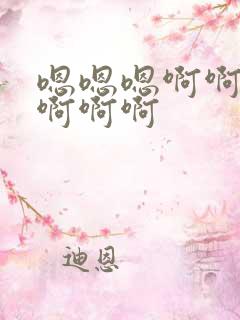 嗯嗯嗯啊啊
啊啊啊
迪恩